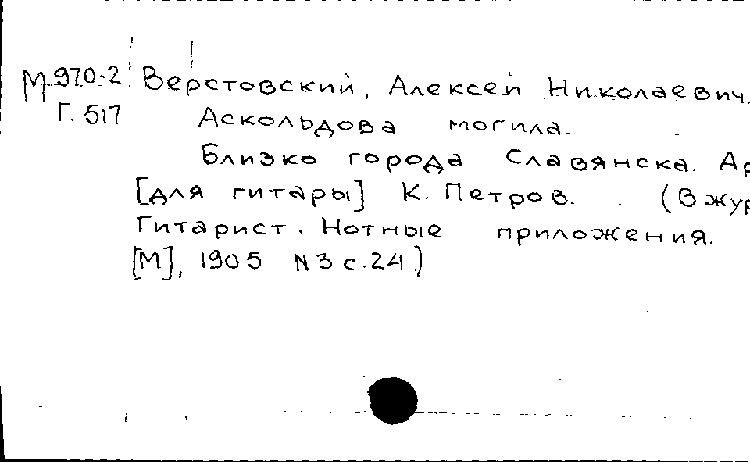 М 970-2 Верстовский, Алексей Николаевич.
Г. 517 Аскольдова могила.
Близко города Славянска. Ар
[для гитары] К. Петров. (В жур
Гитарист. Нотные приложения.
[М], 1905 N 3 с. 24)